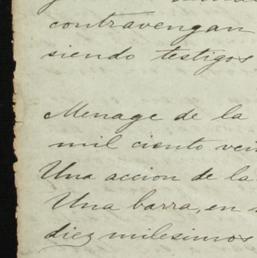 contravengan
siendo testigos
Menage de la
mil ciento
Una accion de la
Una barra, en
diez milesimos